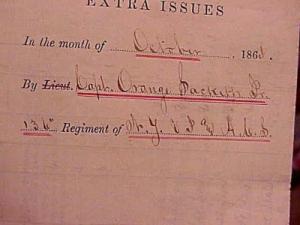 EXTRA ISSUES
In the month of October 186
By Lieut. Capt. Orange Sackett Jr.
136th Regiment of N. Y. V A. C. S.